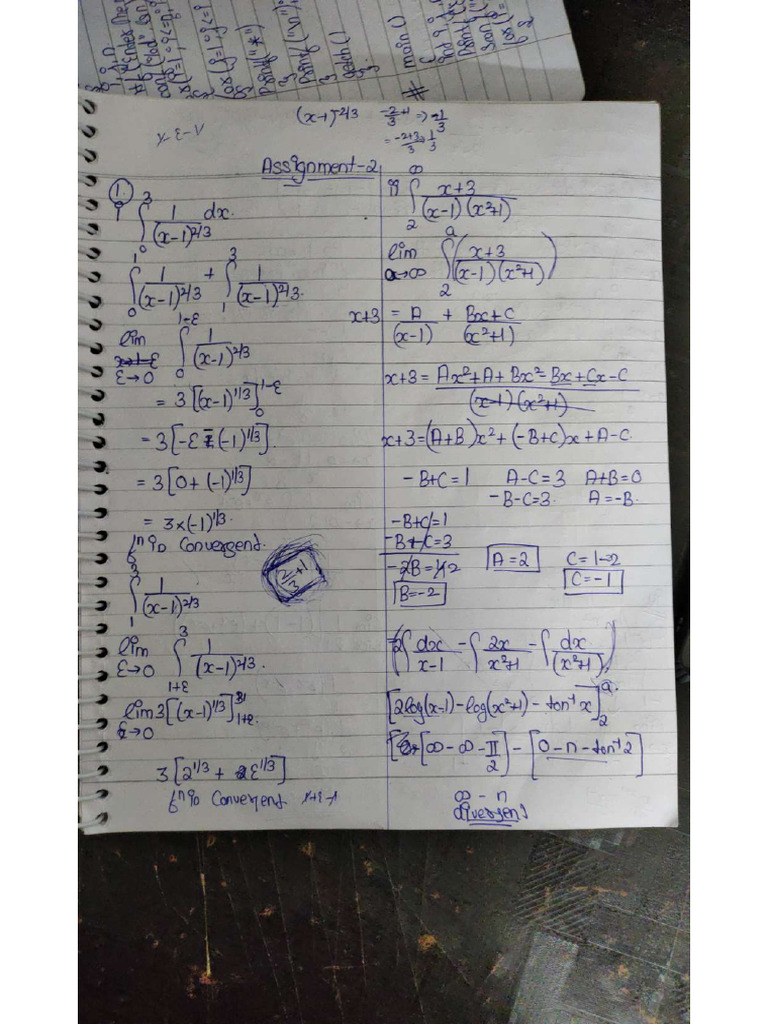 main()
#
(x-1)^2/3   -2/3+1 => -1/3
= -2+3/3 = 1/3
Assignment-2
1.
i) ∫_0^3 1/(x-1)^2/3 dx.
∫_0^1 1/(x-1)^2/3 + ∫_1^3 1/(x-1)^2/3.
lim ε→0 ∫_0^1+ε 1/(x-1)^2/3
= 3[(x-1)^1/3]_0^1-ε
= 3[-ε - (-1)^1/3]
= 3[0+(-1)^1/3]
= 3×(-1)^1/3.
f^n is Convergend.
2/3+1
∫_1^3 1/(x-1)^2/3
lim ε→0 ∫_1+ε^3 1/(x-1)^2/3.
lim ε→0 3[(x-1)^1/3]_1+ε^3
3[2^1/3 + ε^1/3]
f^n is Convergent
ii) ∫_2^∞ x+3/(x-1)(x²+1)
lim a→∞ ∫_2^a (x+3/(x-1)(x²+1))
x+3 = A/(x-1) + Bx+C/(x²+1)
x+3 = Ax²+A+Bx²-Bx+Cx-C/(x-1)(x²+1)
x+3=(A+B)x²+(-B+C)x+A-C.
-B+C=1   A-C=3   A+B=0
-B-C=3.   A=-B.
-B+C=1
-B-C=3
-2B=4   A=2   C=1-2
B=-2   C=-1
2(∫dx/x-1 - ∫2x/x²+1 - ∫dx/(x²+1))
[2log(x-1)-log(x²+1)-tan⁻¹x]_2^a.
[∞-∞-π/2]-[0-n-tan⁻¹2]
∞-n
divergent